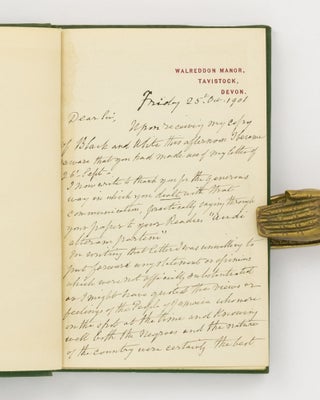 WALREDDON MANOR,
TAVISTOCK,
DEVON.
Friday 25 Oct. 1901
Dear Sir,
Upon receiving my copy
of Black and White this afternoon I became
aware that you had made use of my letter of
26 Sept.
I now write to thank you for the generous
way in which you dealt with that
communication, practically saying through
your paper to your Readers "audi
alteram partem"
In writing that letter I was unwilling to
put forward any statement or opinions
which were not officially substantiated
or I might have quoted the views or
feelings of the People of Jamaica who were
on the spot at the time and knowing
well both the Negroes and the nature
of the country were certainly the best